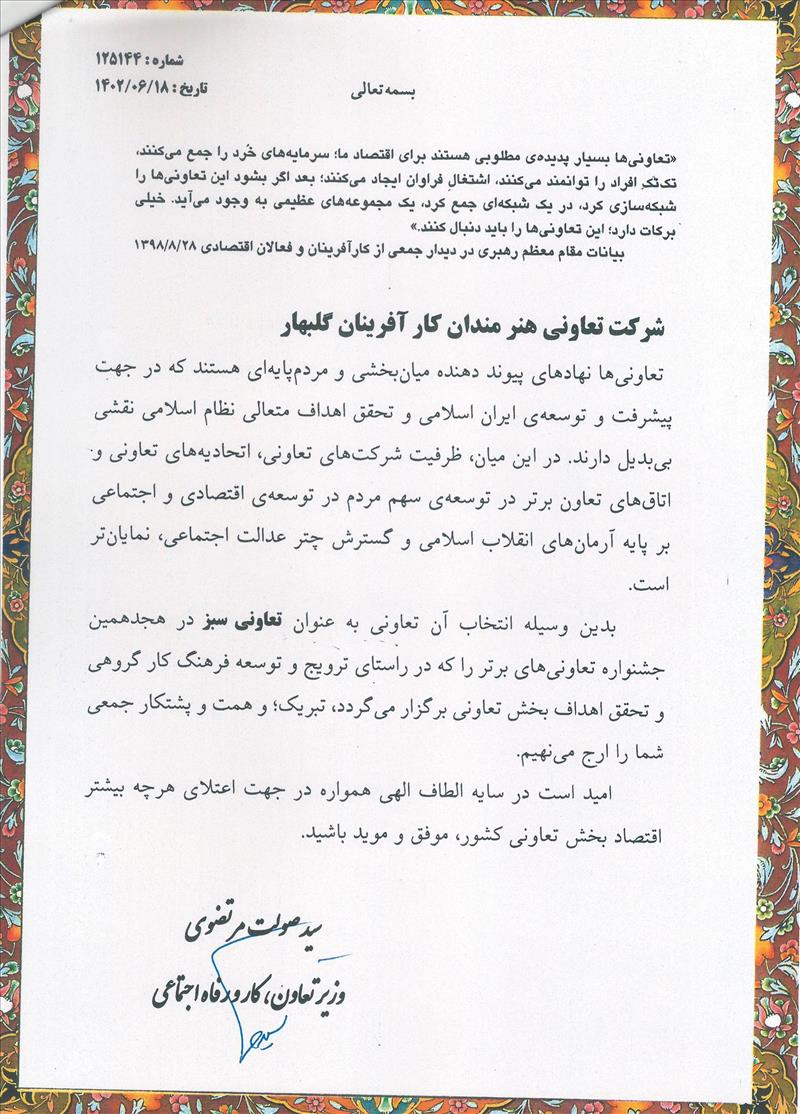 شماره: ۱۲۵۱۴۴
تاریخ: ۱۴۰۲/۰۶/۱۸
بسمه تعالی
«تعاونی‌ها بسیار پدیده‌ی مطلوبی هستند برای اقتصاد ما؛ سرمایه‌های خُرد را جمع می‌کنند،
تک‌تک افراد را توانمند می‌کنند، اشتغالِ فراوان ایجاد می‌کنند؛ بعد اگر بشود این تعاونی‌ها را
شبکه‌سازی کرد، در یک شبکه‌ای جمع کرد، یک مجموعه‌های عظیمی به وجود می‌آید. خیلی
برکات دارد؛ این تعاونی‌ها را باید دنبال کنند.»
بیانات مقام معظم رهبری در دیدار جمعی از کارآفرینان و فعالان اقتصادی ۱۳۹۸/۸/۲۸
شرکت تعاونی هنر مندان کار آفرینان گلبهار
تعاونی‌ها نهادهای پیوند دهنده میان‌بخشی و مردم‌پایه‌ای هستند که در جهت
پیشرفت و توسعه‌ی ایران اسلامی و تحقق اهداف متعالی نظام اسلامی نقشی
بی‌بدیل دارند. در این میان، ظرفیت شرکت‌های تعاونی، اتحادیه‌های تعاونی و
اتاق‌های تعاون برتر در توسعه‌ی سهم مردم در توسعه‌ی اقتصادی و اجتماعی
بر پایه آرمان‌های انقلاب اسلامی و گسترش چتر عدالت اجتماعی، نمایان‌تر
است.
بدین وسیله انتخاب آن تعاونی به عنوان تعاونی سبز در هجدهمین
جشنواره تعاونی‌های برتر را که در راستای ترویج و توسعه فرهنگ کار گروهی
و تحقق اهداف بخش تعاونی برگزار می‌گردد، تبریک؛ و همت و پشتکار جمعی
شما را ارج می‌نهیم.
امید است در سایه الطاف الهی همواره در جهت اعتلای هرچه بیشتر
اقتصاد بخش تعاونی کشور، موفق و موید باشید.
سید صولت مرتضوی
وزیر تعاون، کار و رفاه اجتماعی